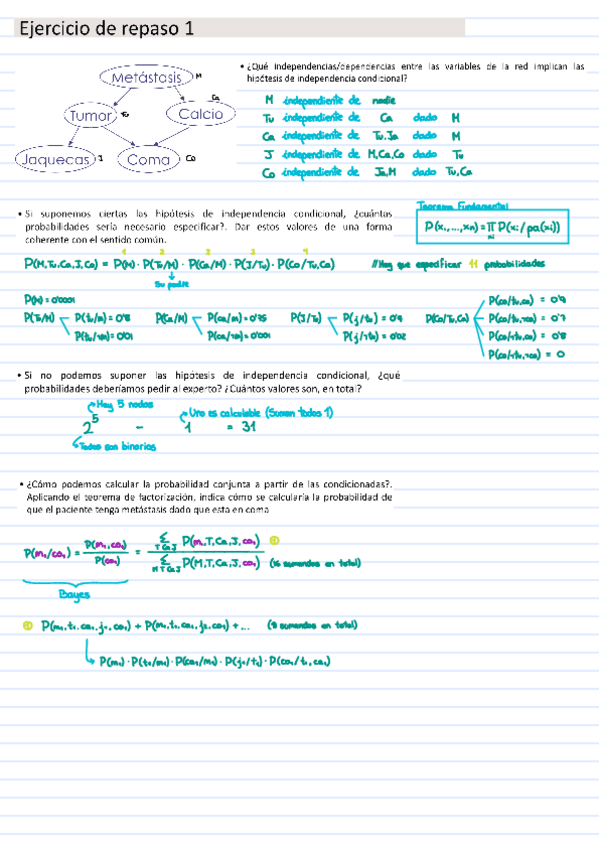 Ejercicio de repaso 1
Metástasis M
Tumor Tu
Calcio Ca
Jaquecas J
Coma Co
• ¿Qué independencias/dependencias entre las variables de la red implican las
hipótesis de independencia condicional?
M independiente de nadie
Tu independiente de Ca dado M
Ca independiente de Tu,Ja dado M
J independiente de M,Ca,Co dado Tu
Co independiente de Ja,M dado Tu,Ca
• Si suponemos ciertas las hipótesis de independencia condicional, ¿cuántas
probabilidades sería necesario especificar?. Dar estos valores de una forma
coherente con el sentido común.
Teorema Fundamental
P(x₁,...,xn) = π P(xi/pa(xi))
1 2 2 2 4
P(M,Tu,Ca,J,Co) = P(M) · P(Tu/M) · P(Ca/M) · P(J/Tu) · P(Co/Tu,Ca) //Hay que especificar 11 probabilidades
Su padre
P(M) = 0'0001
P(Tu/M) P(tu/m) = 0'8
P(tu/¬m) = 0'01
P(Ca/M) P(ca/m) = 0'75
P(ca/¬m) = 0'001
P(J/Tu) P(j/tu) = 0'9
P(j/¬tu) = 0'02
P(Co/Tu,Ca) P(co/tu,ca) = 0'9
P(co/tu,¬ca) = 0'7
P(co/¬tu,ca) = 0'8
P(co/¬tu,¬ca) = 0
• Si no podemos suponer las hipótesis de independencia condicional, ¿qué
probabilidades deberíamos pedir al experto? ¿Cuántos valores son, en total?
Hay 5 nodos
Uno es calculable (Suman todos 1)
2⁵ - 1 = 31
Todos son binarios
• ¿Cómo podemos calcular la probabilidad conjunta a partir de las condicionadas?.
Aplicando el teorema de factorización, indica cómo se calcularía la probabilidad de
que el paciente tenga metástasis dado que esta en coma
P(m₁/co₁) = P(m₁,co₁) / P(co₁) = Σ T Ca J P(m₁,T,Ca,J,co₁) ① / Σ M T Ca J P(M,T,Ca,J,co₁) (16 sumandos en total)
Bayes
① P(m₁,t₁,ca₁,j₁,co₁) + P(m₁,t₁,ca₁,j₂,co₁) + ... (8 sumandos en total)
P(m₁) · P(t₁/m₁) · P(ca₁/m₁) · P(j₁/t₁) · P(co₁/t₁,ca₁)